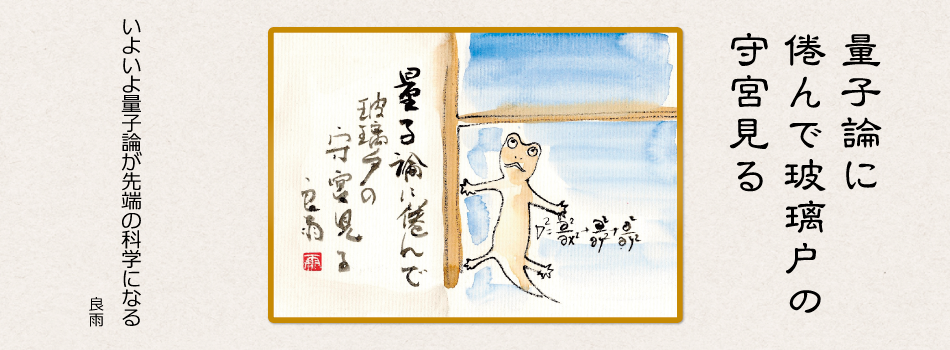 量子論に
倦んで玻璃戸の
守宮見る
量子論に倦んで
玻璃戸の
守宮見る
良雨
雨
∇²=∂²/∂x²+∂²/∂y²+∂²/∂y²
いよいよ量子論が先端の科学になる
良雨